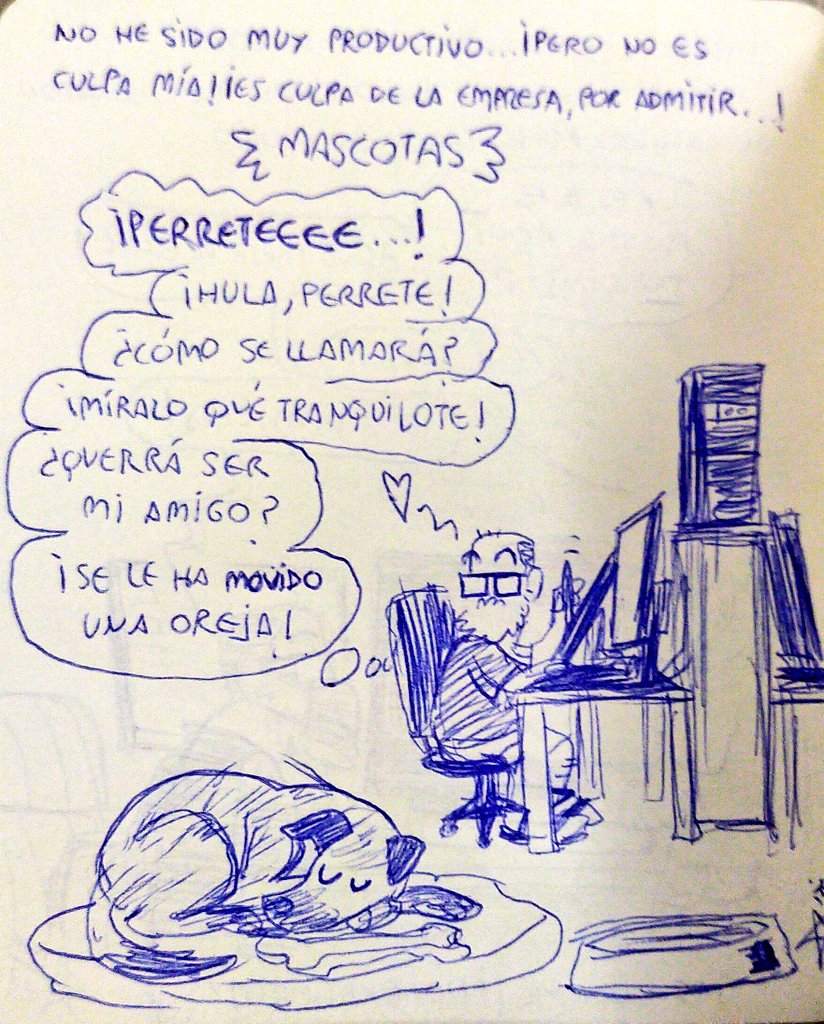 NO HE SIDO MUY PRODUCTIVO...¡PERO NO ES
CULPA MÍA! ¡ES CULPA DE LA EMPRESA, POR ADMITIR...!
MASCOTAS
¡PERRETEEEE...!
¡HULA, PERRETE!
¿CÓMO SE LLAMARÁ?
¡MÍRALO QUÉ TRANQUILOTE!
¿QUERRÁ SER
MI AMIGO?
¡SE LE HA MOVIDO
UNA OREJA!